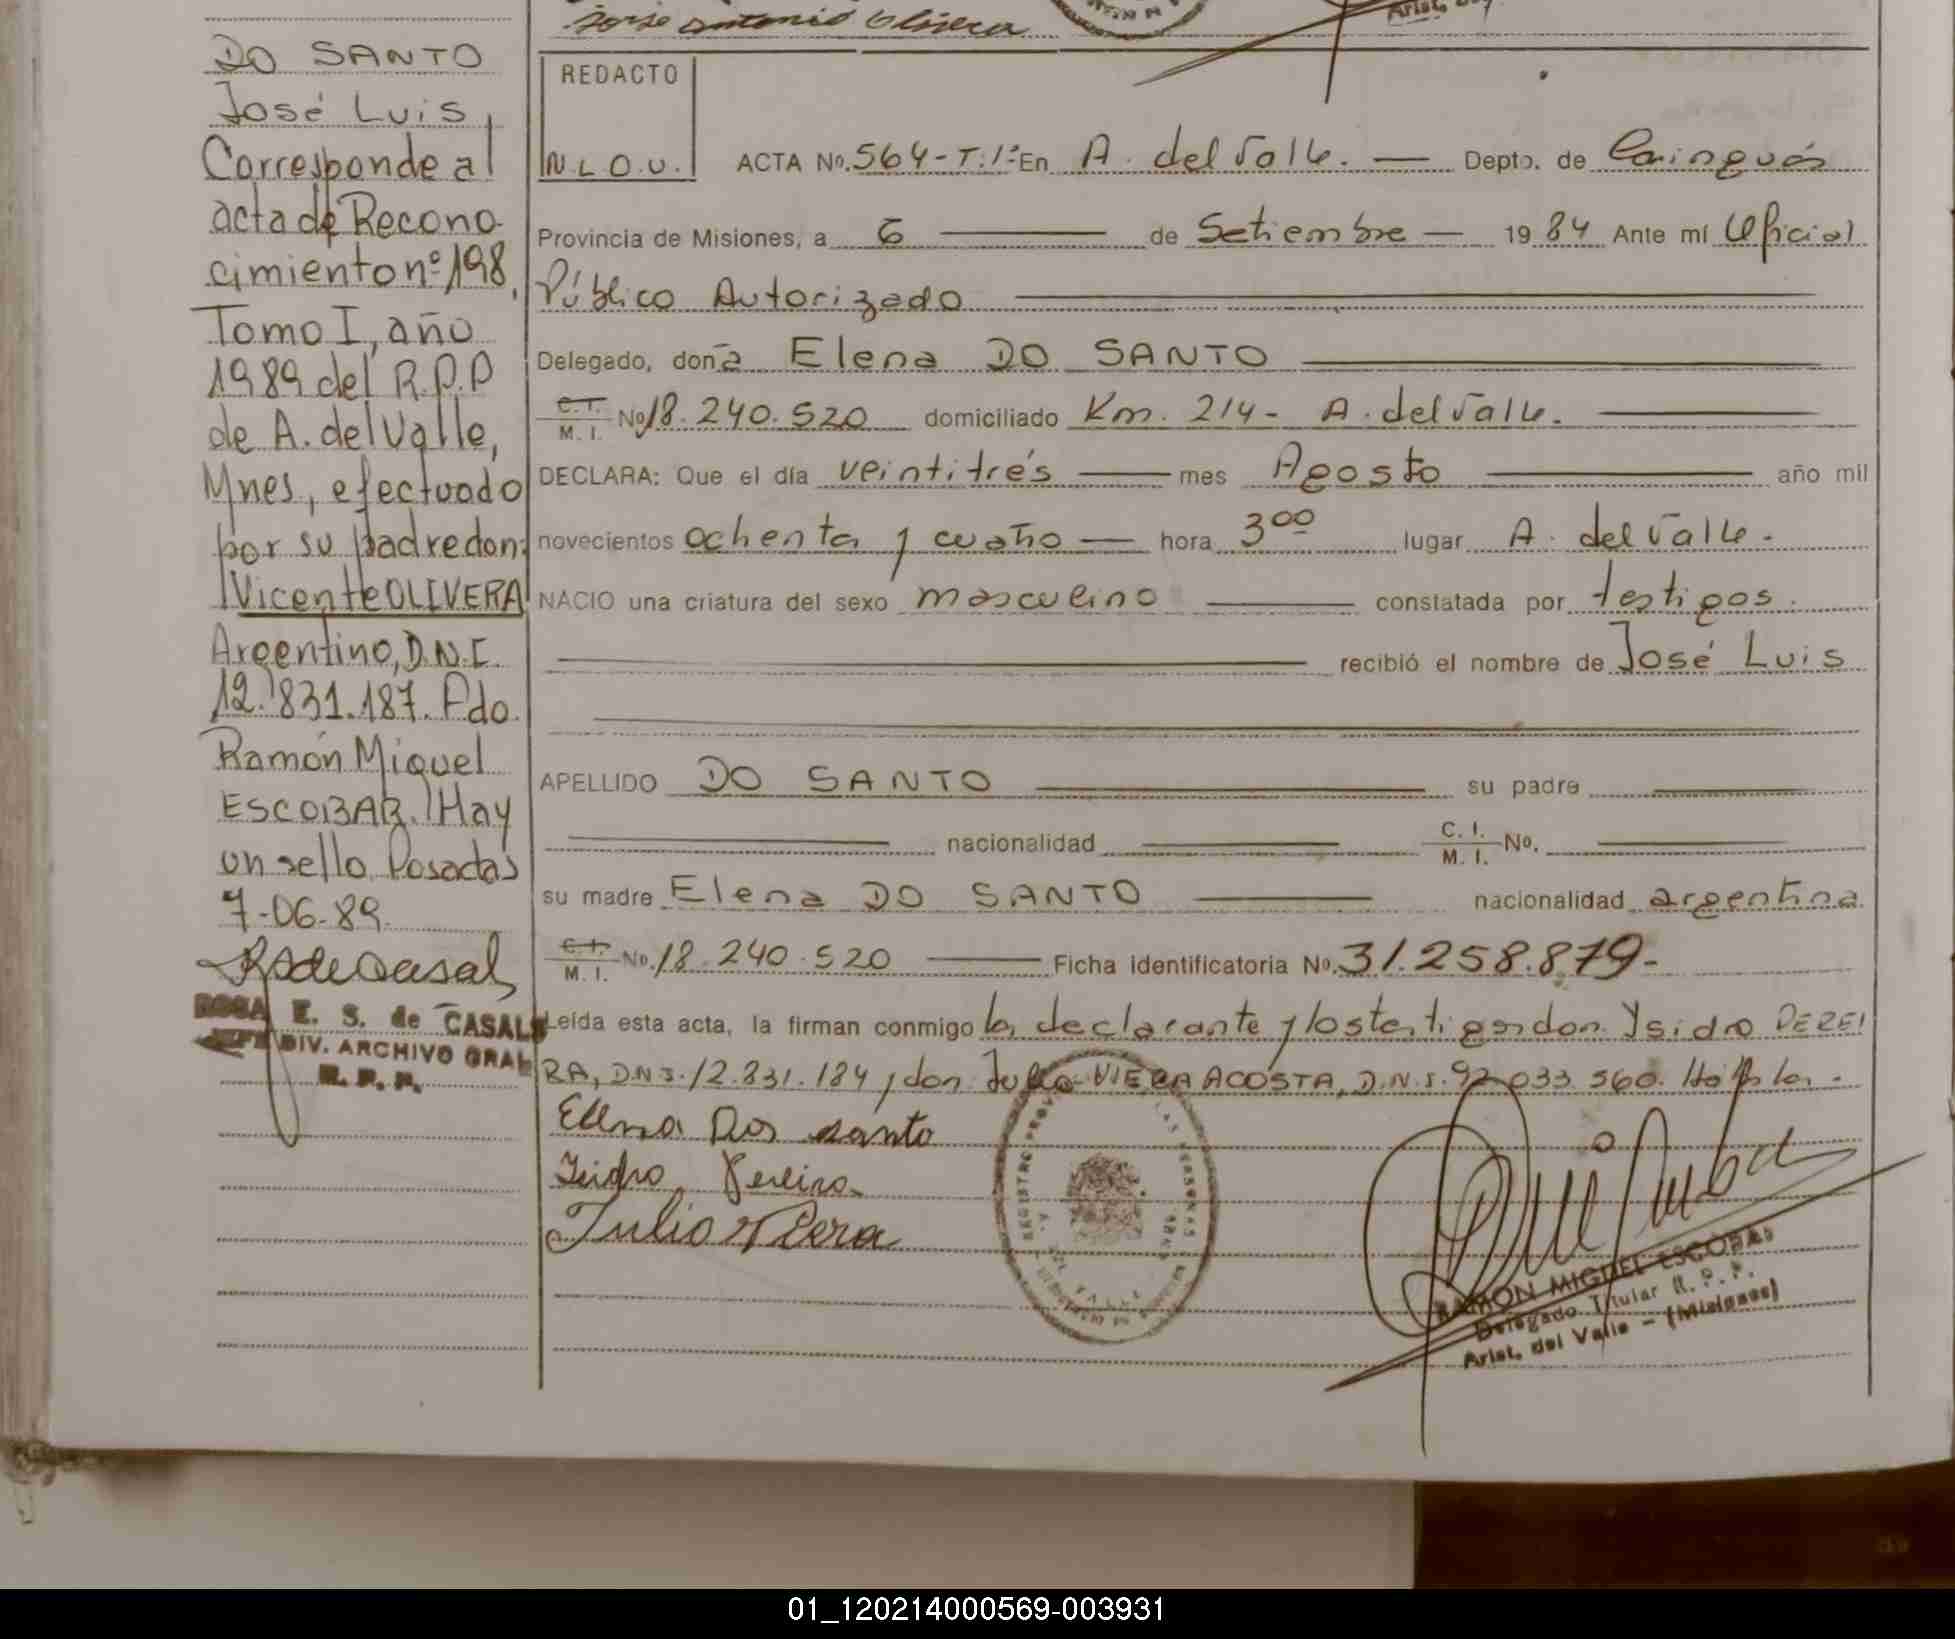 Jorge Antonio Olivera
DO SANTO
José Luis
Corresponde al
acta de Recono-
cimiento nº 198,
Tomo I, año
1989 del R.P.P
de A. del Valle,
Mnes, efectuado
por su padre don:
Vicente OLIVERA
Argentino, D.N.I.
12.831.187. Fdo.
Ramón Miguel
ESCOBAR. Hay
un sello. Posadas
7-06-89.
ROSA E. S. de CASALS
JEFE DIV. ARCHIVO GRAL
R. P. P.
REDACTO
N.L.O.U.
ACTA No. 564-T.1º En A. del Valle. — Depto. de Cainguás
Provincia de Misiones, a 6 — de Setiembre — 1984 Ante mí Oficial
Público Autorizado
Delegado, doña Elena DO SANTO
C.I. M. I. No 18.240.520 domiciliado Km. 214- A. del Valle.
DECLARA: Que el día veintitrés — mes Agosto — año mil
novecientos ochenta y cuatro — hora 3 00 lugar A. del Valle.
NACIO una criatura del sexo masculino — constatada por testigos.
recibió el nombre de José Luis
APELLIDO DO SANTO — su padre
nacionalidad — C. I. M. I. No.
su madre Elena DO SANTO — nacionalidad argentina.
C.I. M. I. No. 18.240.520 — Ficha identificatoria No. 31.258.879-
Leída esta acta, la firman conmigo la declarante y los testigos don Ysidro PEREI
RA, D.N.I. 12.831.184 y don Julio VIERA ACOSTA, D.N.I. 92.033.560.
Elena Dos santo
Isidro Pereira
Julio Viera
RAMON MIGUEL ESCOBAR
Delegado Titular R. P. P.
Arist. del Valle - (Misiones)
01_120214000569-003931